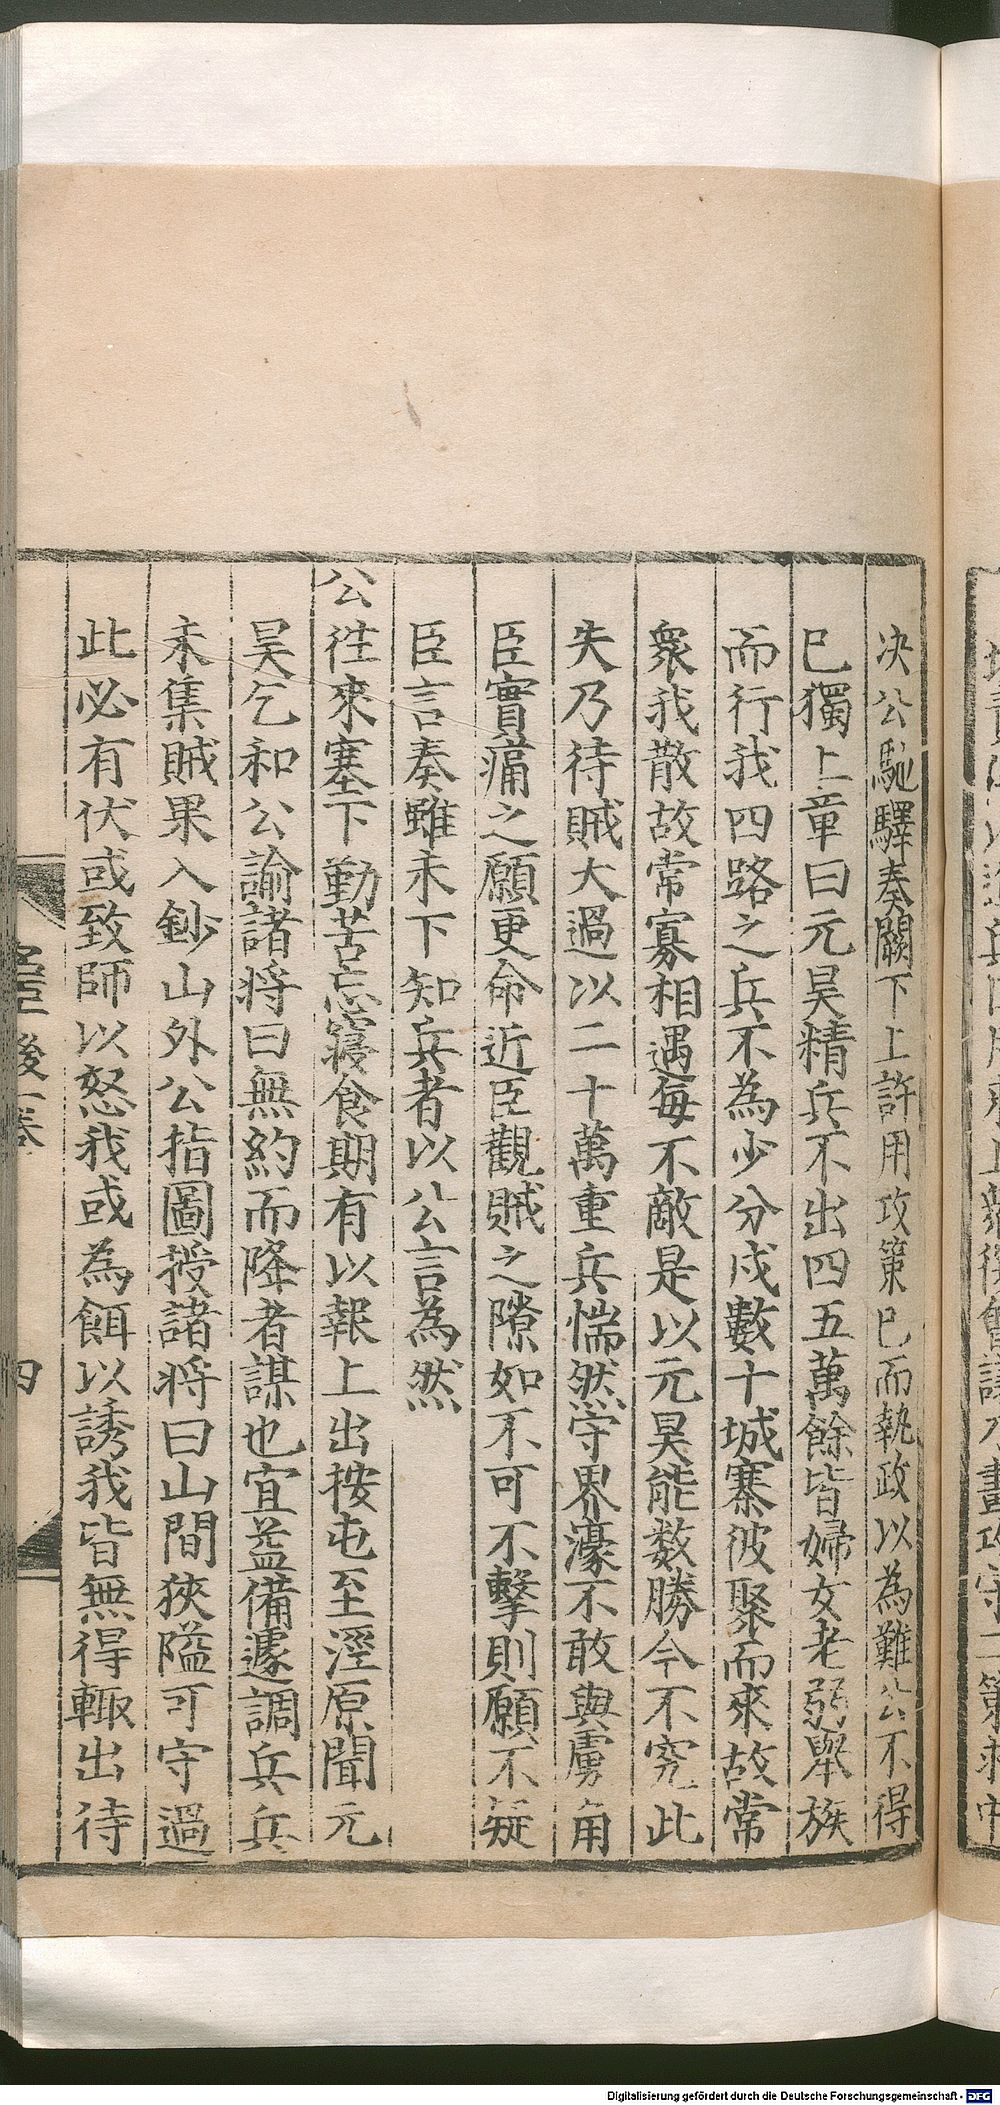 决公馳驛奏闕下上許用攻策已而執政以為難公不得
已獨上章曰元昊精兵不出四五萬餘皆婦女老弱舉族
而行我四路之兵不為少分戍數十城寨彼聚而來故常
衆我散故常寡相遇每不敵是以元昊能数勝今不究此
失乃待賊大過以二十萬重兵惴然守界濠不敢與虜角
臣實痛之願更命近臣觀賊之隙如不可不擊則願不疑
臣言奏雖未下知兵者以公言為然
公徃來塞下勤苦忘寢食期有以報上出按屯至涇原聞元
昊乞和公諭諸将曰無約而降者謀也宜益備遽調兵兵
未集賊果入鈔山外公指圖授諸将曰山間狹隘可守過
此必有伏或致師以怒我或為餌以誘我皆無得輙出待
後一卷
四
Digitalisierung gefördert durch die Deutsche Forschungsgemeinschaft - DFG